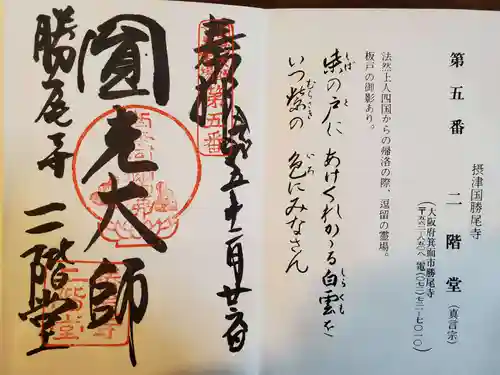 第五番 二階堂(真言宗)
摂津国勝尾寺
大阪府箕面市勝尾寺
法然上人四国からの帰洛の際、逗留の霊場。
板戸の御影あり。
柴の戸に あけくれかゝる白雲を
しば と しらくも
いつ紫の 色にみなさん
むらさき いろ
奉拝
第五番
圓光大師
勝尾寺 二階堂